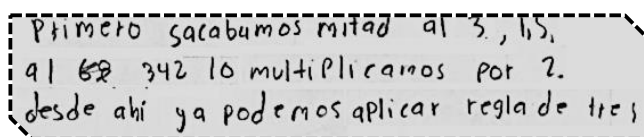 Primero sacabamos mitad al 3, 1,5,
al 342 lo multiplicamos por 2.
desde ahi ya podemos aplicar regla de tres